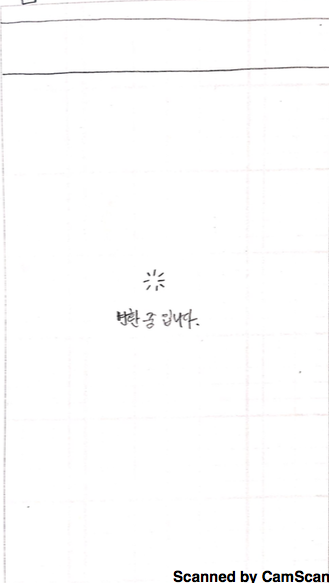 변환 중 입니다.
Scanned by CamScan